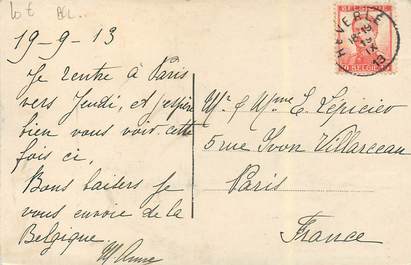 lot
19-9-13
Je rentre à Paris
vers Jeudi, et j'espère
bien vous voir cette
fois ci.
Bons baisers Je
vous envoie de la
Belgique.
M Anne
BELGIE
HEVERLE
13
BELGIQUE
Mr & Mme E. Lepicier
5 rue Yvon Villarceau
Paris
France